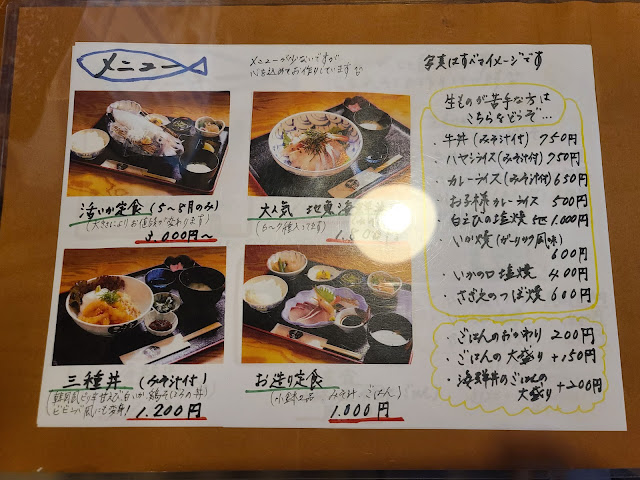 メニュー
メニューが少ないですが
心を込めてお作りしています
写真はすべてイメージです
活いか定食 (5~8月のみ)
(大きさによりお値段が変わります)
3,000円~
大人気 地魚
(6~7種入ってます)
三種丼 (みそ汁付)
1.200円
お造り定食
(小鉢2品 みそ汁 ごはん)
1.000円
生ものが苦手な方は
こちらをどうぞ…
・牛丼 (みそ汁付) 750円
・ハヤシライス (みそ汁付) 750円
・カレーライス (みそ汁付) 650円
・お子様カレーライス 500円
・白えびの塩焼 1.000円
・いか焼 (ガーリック風味)
600円
・いかの口塩焼 400円
・さざえのつぼ焼 600円
・ごはんのおかわり 200円
・ごはんの大盛り +150円
・海鮮丼のごはんの
大盛り +200円